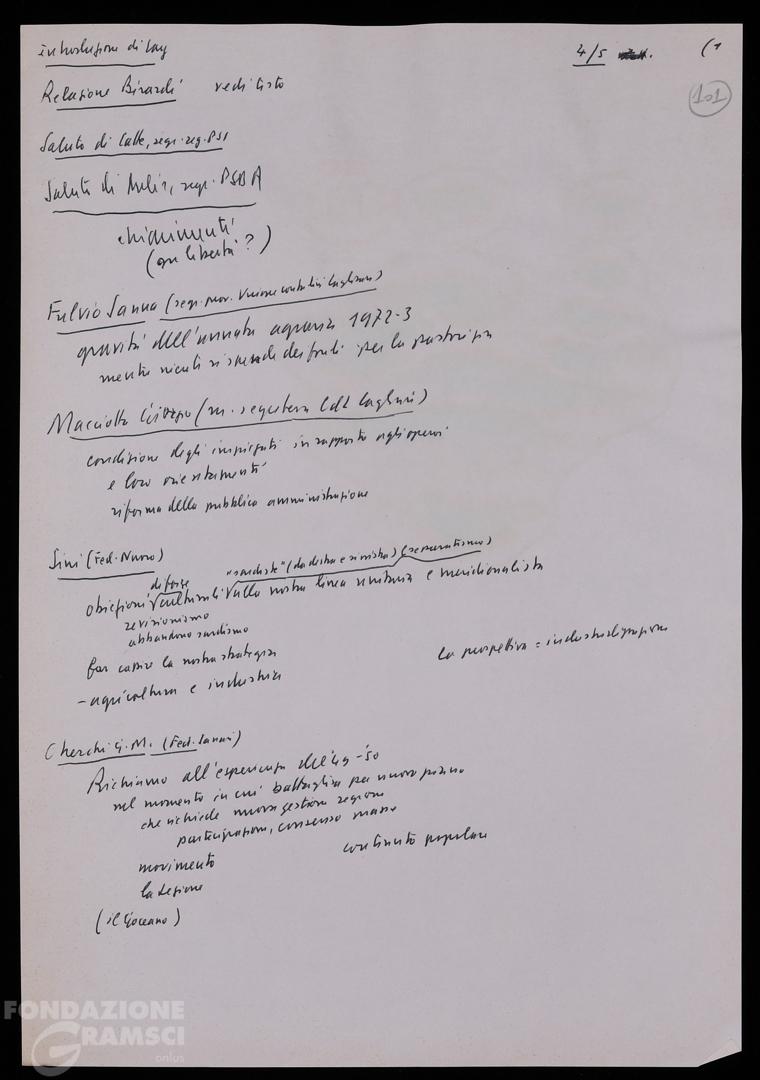 introduzione di Lay
4/5 (1
101
Relazione Birardi vedi testo
Saluto di Catte, segr. reg. PSI
Saluti di Melis, segr. PSDA
chiarimenti
(su libertà?)
Fulvio Sanna (segr. prov. Unione contadini Cagliari)
gravità dell'annata agraria 1972-3
mentre per la pastorizia
Macciotta Giorgio (m. segreteria CdL Cagliari)
condizione degli impiegati in rapporto agli operai
e loro orientamenti
riforma della pubblica amministrazione
Sini (Fed. Nuoro)
"sardiste" (da destra e sinistra) (separatismo)
di forze
obiezioni culturali sulla nostra linea unitaria e meridionalista
revisionismo
abbandono sardismo
far capire la nostra strategia
la prospettiva = industrializzazione
- agricoltura e industria
Cherchi G.M. (Fed. Sassari)
Richiamo all'esperienza del '49-'50
nel momento in cui battaglia per nuovo piano
che richiede nuova gestione regione
partecipazione, consenso masse
contenuto popolare
movimento
la Regione
(il Goceano)
FONDAZIONE
GRAMSCI
onlus